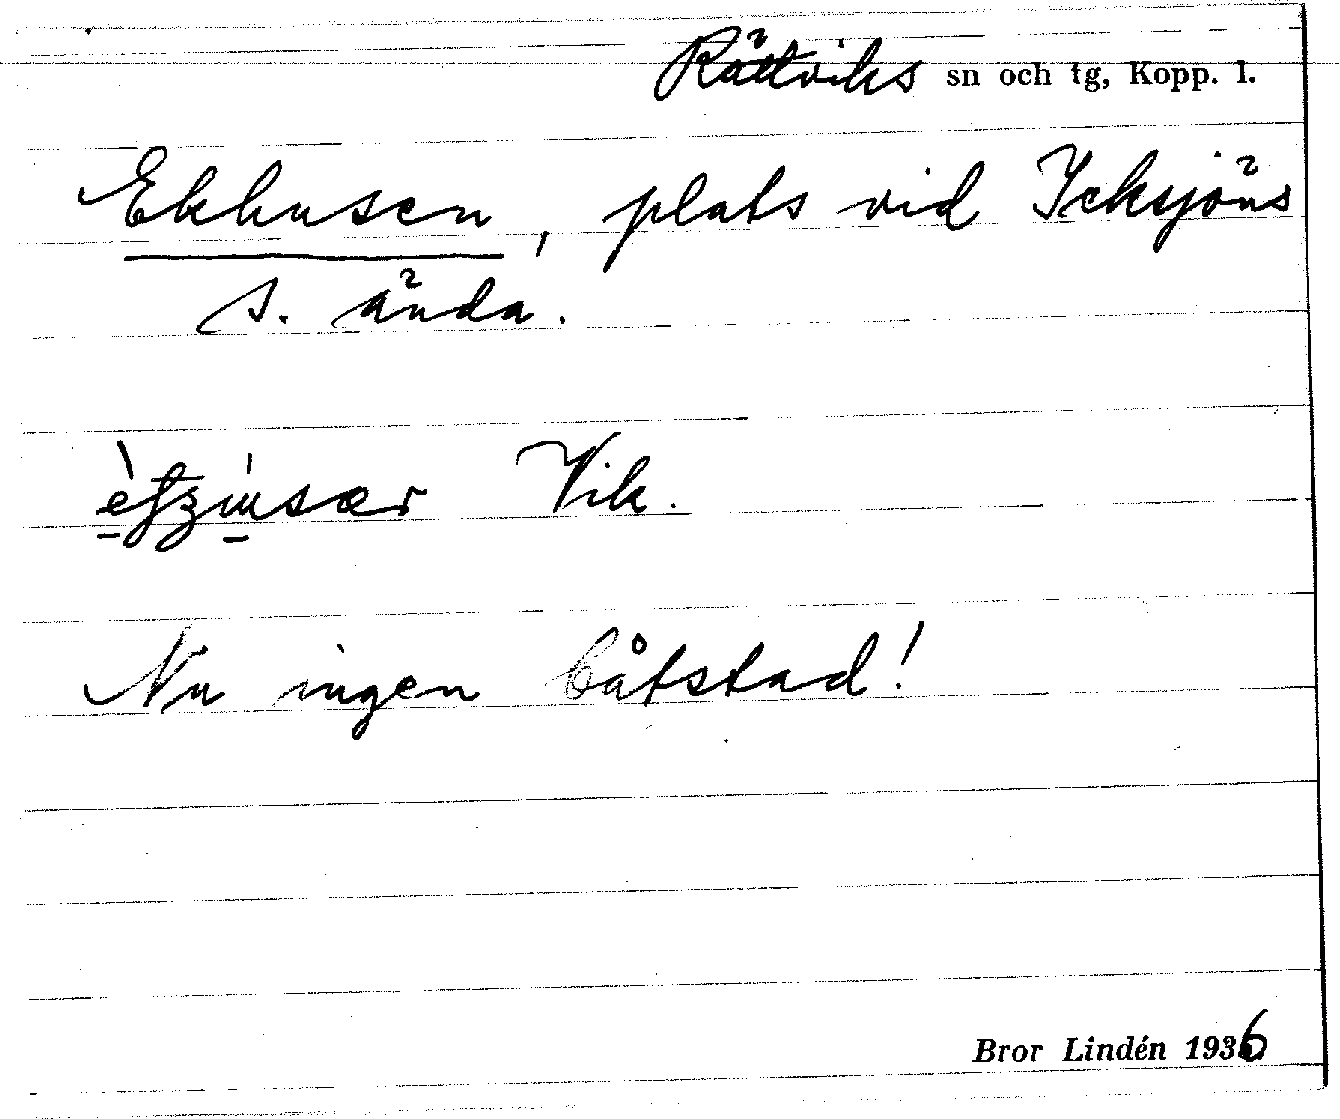 Rättviks sn och tg, Kopp. l.
Ekhusen, plats vid Icksjöns
s. ända.
Vik.
Nu ingen båtstad!
Bror Lindén 1936